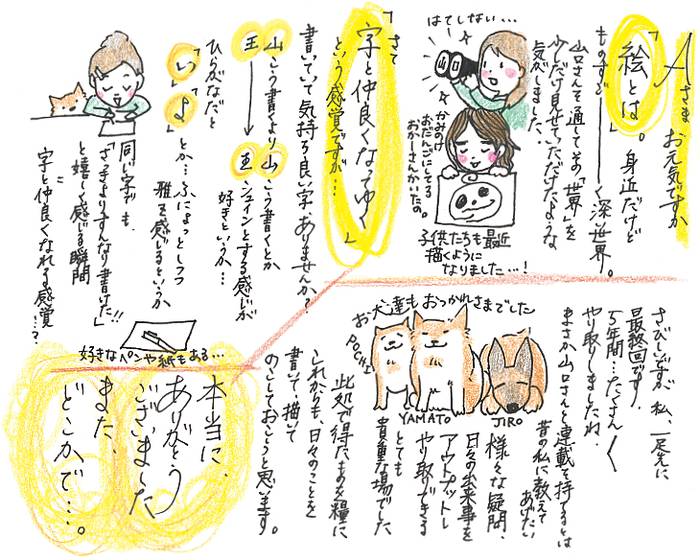 Aさま お元気ですか
「絵とは。」身近だけど
ものすご———く深い世界。
山口さんを通してその「世界」を
少しだけ見せていただけたような
気がしました。
はてしない…
山口
かみのけ
おだんごにしてる
おかーさんかいたの。
子供たちも最近
描くように
なりました…!
「さて
字と仲良くなってゆく」
という感覚ですが…
書いていて気持ち良い字、ありませんか?
山こう書くより山こう書くとか
王→王
シュインとする感じが
好きというか…
ひらがなだと
「い」「よ」
とか…ふにょっとしつつ
雅を感じるというか
同じ字でも、
「さっきよりすんなり書けた」!!
と嬉しく感じる瞬間
字と仲良くなれる感覚…?
こ
好きなペンや紙もある…
さびしいですが 私、一足先に
最終回です。
5年間…たくさんく
やり取りしましたね。
まさか山口さんと連載を持てるとは
昔の私に教えて
あげたい
お犬達も おつかれさまでした
POCHI
YAMATO
JIRO
様々な疑問、
日々の出来事を
アウトプットし
やり取りできる
とても
貴重な場でした
此処で得たものを糧に
これからも日々のことを
書いて・描いて
のこしておこうと思います。
本当に、
ありがとう
ございました
また、
どこかで…。